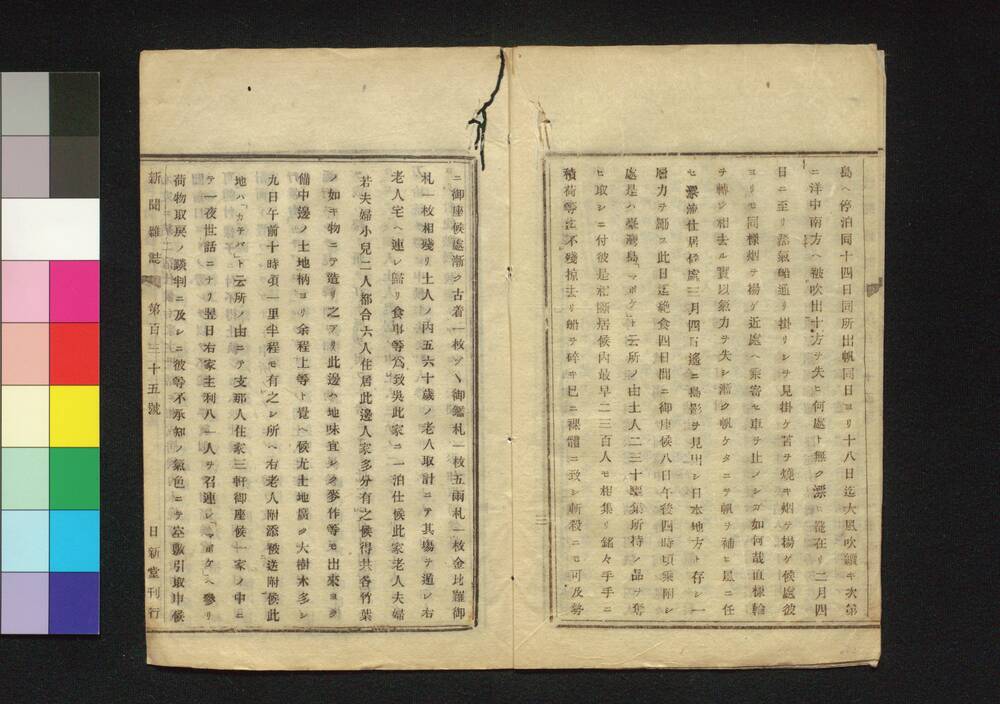 島ヘ停泊同十四日同所出帆同日ヨリ十八日迄大風吹續キ次第
ニ洋中南方ヘ被吹出十方ヲ失ヒ何處ト無ク漂ヒ罷在リ二月四
日ニ至リ蒸氣船通リ掛リシヲ見掛ケ苫ヲ燒キ烟ヲ揚ケ候處彼
ヨリモ同樣烟ヲ揚ケ近處ヘ乘寄セ車ヲ止ノシガ如何哉直樣輪
ヲ轉シ相去ル實以氣力ヲ失シ漸ク帆ケタニヲ帆ヲ補ヒ風ニ任
セ漂流仕居候處三月四日遙ニ島影ヲ見出シ日本地方ト存シ一
層力ヲ勵ス此日迄絶食四日間ニ御座候八日午後四時頃乘附シ
處是ハ臺灣島「マボケ」ト云所ノ由土人二三十屯集所持ノ品ヲ奪
ヒ取シニ付彼是相斷居候內最早二三百人モ相集リ銘々手手ニ
積荷等ハ不殘掠去リ船ヲ碎キ已ニ裸體ニ致シ斬殺ニモ可及勢
ニ御座候處漸ク古着一枚ツヽ御鑑札一枚五兩札一枚金比羅御
札一枚相殘リ土人ノ內五六十歲ノ老人取計ニテ其場ヲ遁レ右
老人宅ヘ連レ歸リ食事等爲致吳此家ニ一泊仕候此家老人夫婦
若夫婦小兒二人都合六人住居此邊人家多分有之候得共各竹葉
ノ如キ物ニテ造リ之アリ此邊ハ地味宜シク麥作等モ出來ヨク
備中邊ノ土地柄ヨリ余程上等ト覺ヘ候尤土地廣ク大樹木多シ
九日午前十時頃一里半程モ有之シ所ヘ右老人附添被送附候此
地ハ「カチバ」ト云所ノ由ニテ支那人住家三軒御座候一家ノ中ニ
テ一夜世話ニナリ翌日右家主利八一人ヲ召連レ「マボケ」ヘ參リ
荷物取戾ノ談判ニ及シニ彼等不承知ノ氣色ニテ空敷引取申候
新聞雜誌 第百三十五號 日新堂刊行
三